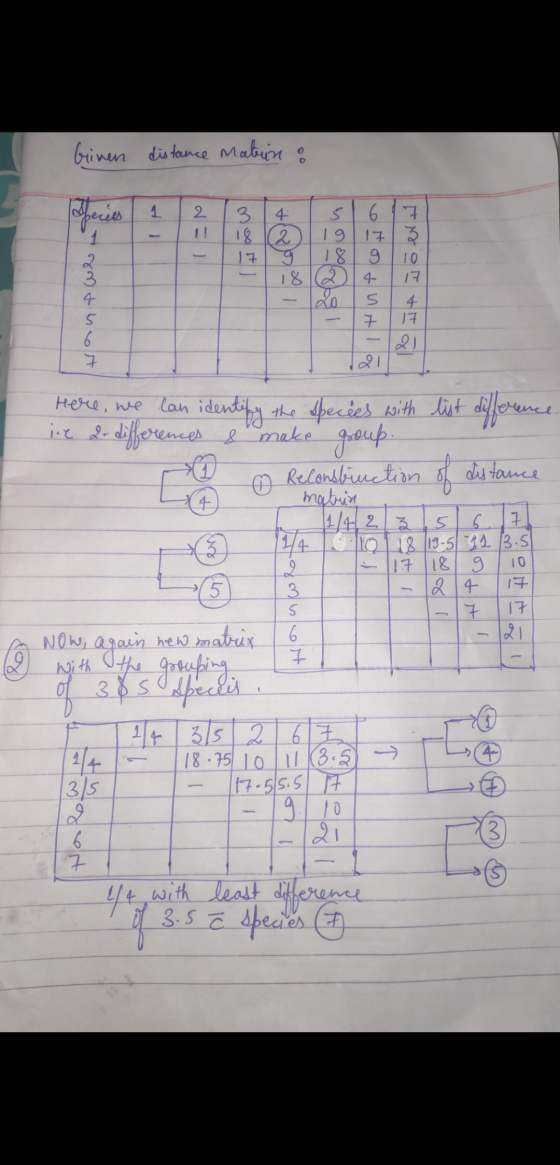 Given distance Matrix :
Species 1 2 3 4 5 6 7
1 - 11 18 2 19 17 3
2 - 17 9 18 9 10
3 - 18 2 4 17
4 - 20 5 4
5 - 7 17
6 - 21
7 21
Here, we can identify the species with list difference
i.e 2-differences & make group.
1
4
3
5
① Reconstruction of distance
matrix
1/4 2 3 5 6 7
1/4 10 18 19.5 11 3.5
2 - 17 18 9 10
3 - 2 4 17
5 - 7 17
6 - 21
7 -
② Now, again new matrix
with the grouping
of 3 & 5 species.
1/4 3/5 2 6 7
1/4 - 18.75 10 11 3.5 →
3/5 - 17.5 5.5 17
2 - 9 10
6 - 21
7 -
1
4
7
3
5
1/4 with least difference
of 3.5 c̅ species 7